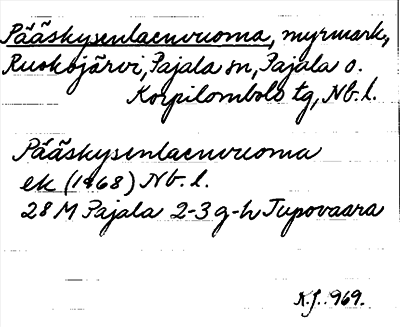 Pääskysenlaenvuoma, myrmark,
Ruokojärvi, Pajala sn, Pajala o.
Korpilombolo tg, Nb. l.
Pääskysenlaenvuoma
ek (1968) Nb. l.
28 M Pajala 2-3 g-h Tupovaara
K.J. 969.